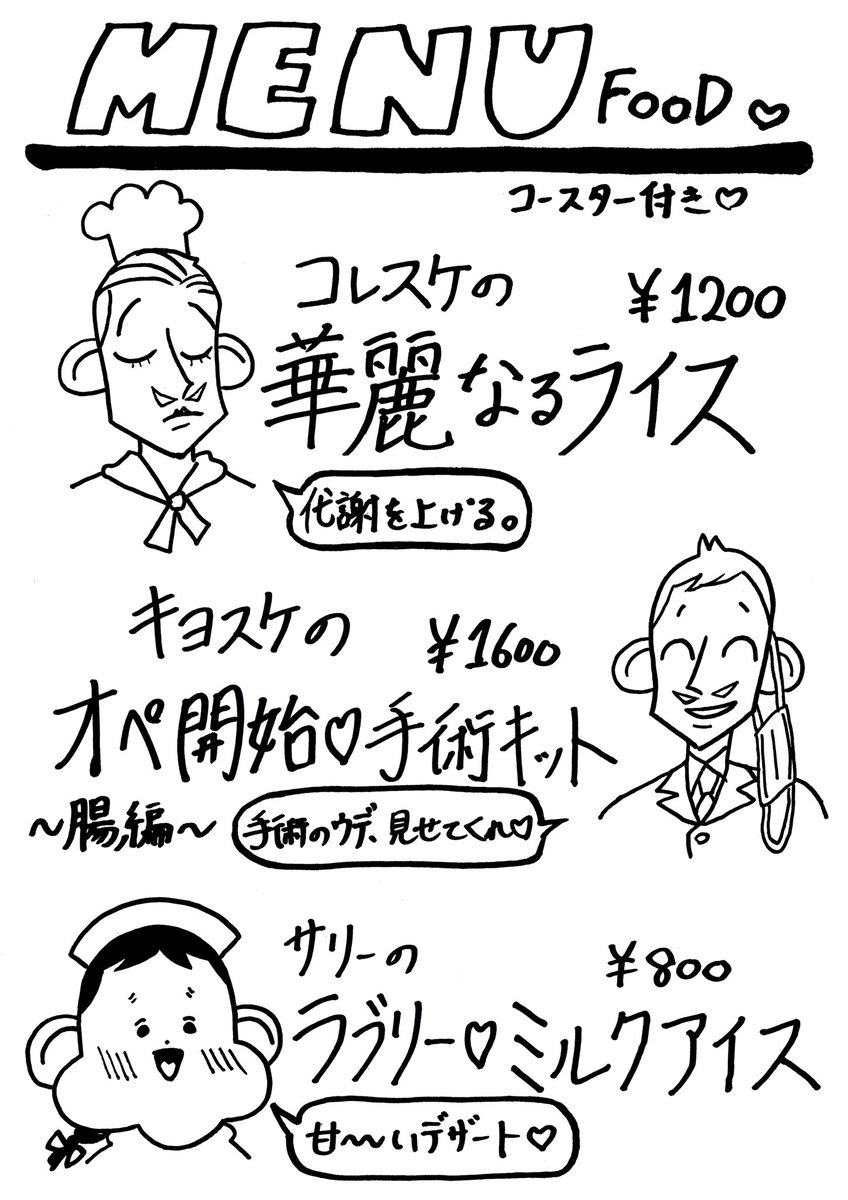 MENU FOOD♡
コースター付き♡
コレスケの
¥1200
華麗なるライス
代謝を上げる。
キヨスケの
¥1600
オペ開始♡手術キット
〜腸編〜
手術のウデ、見せてくれ♡
サリーの
¥800
ラブリー♡ミルクアイス
甘〜〜いデザート♡